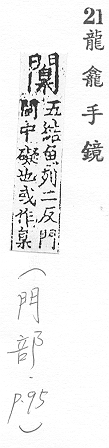 21龍龕手鏡
闑五結魚列二反門
間中礙也或作臬
(門部.
p.95)